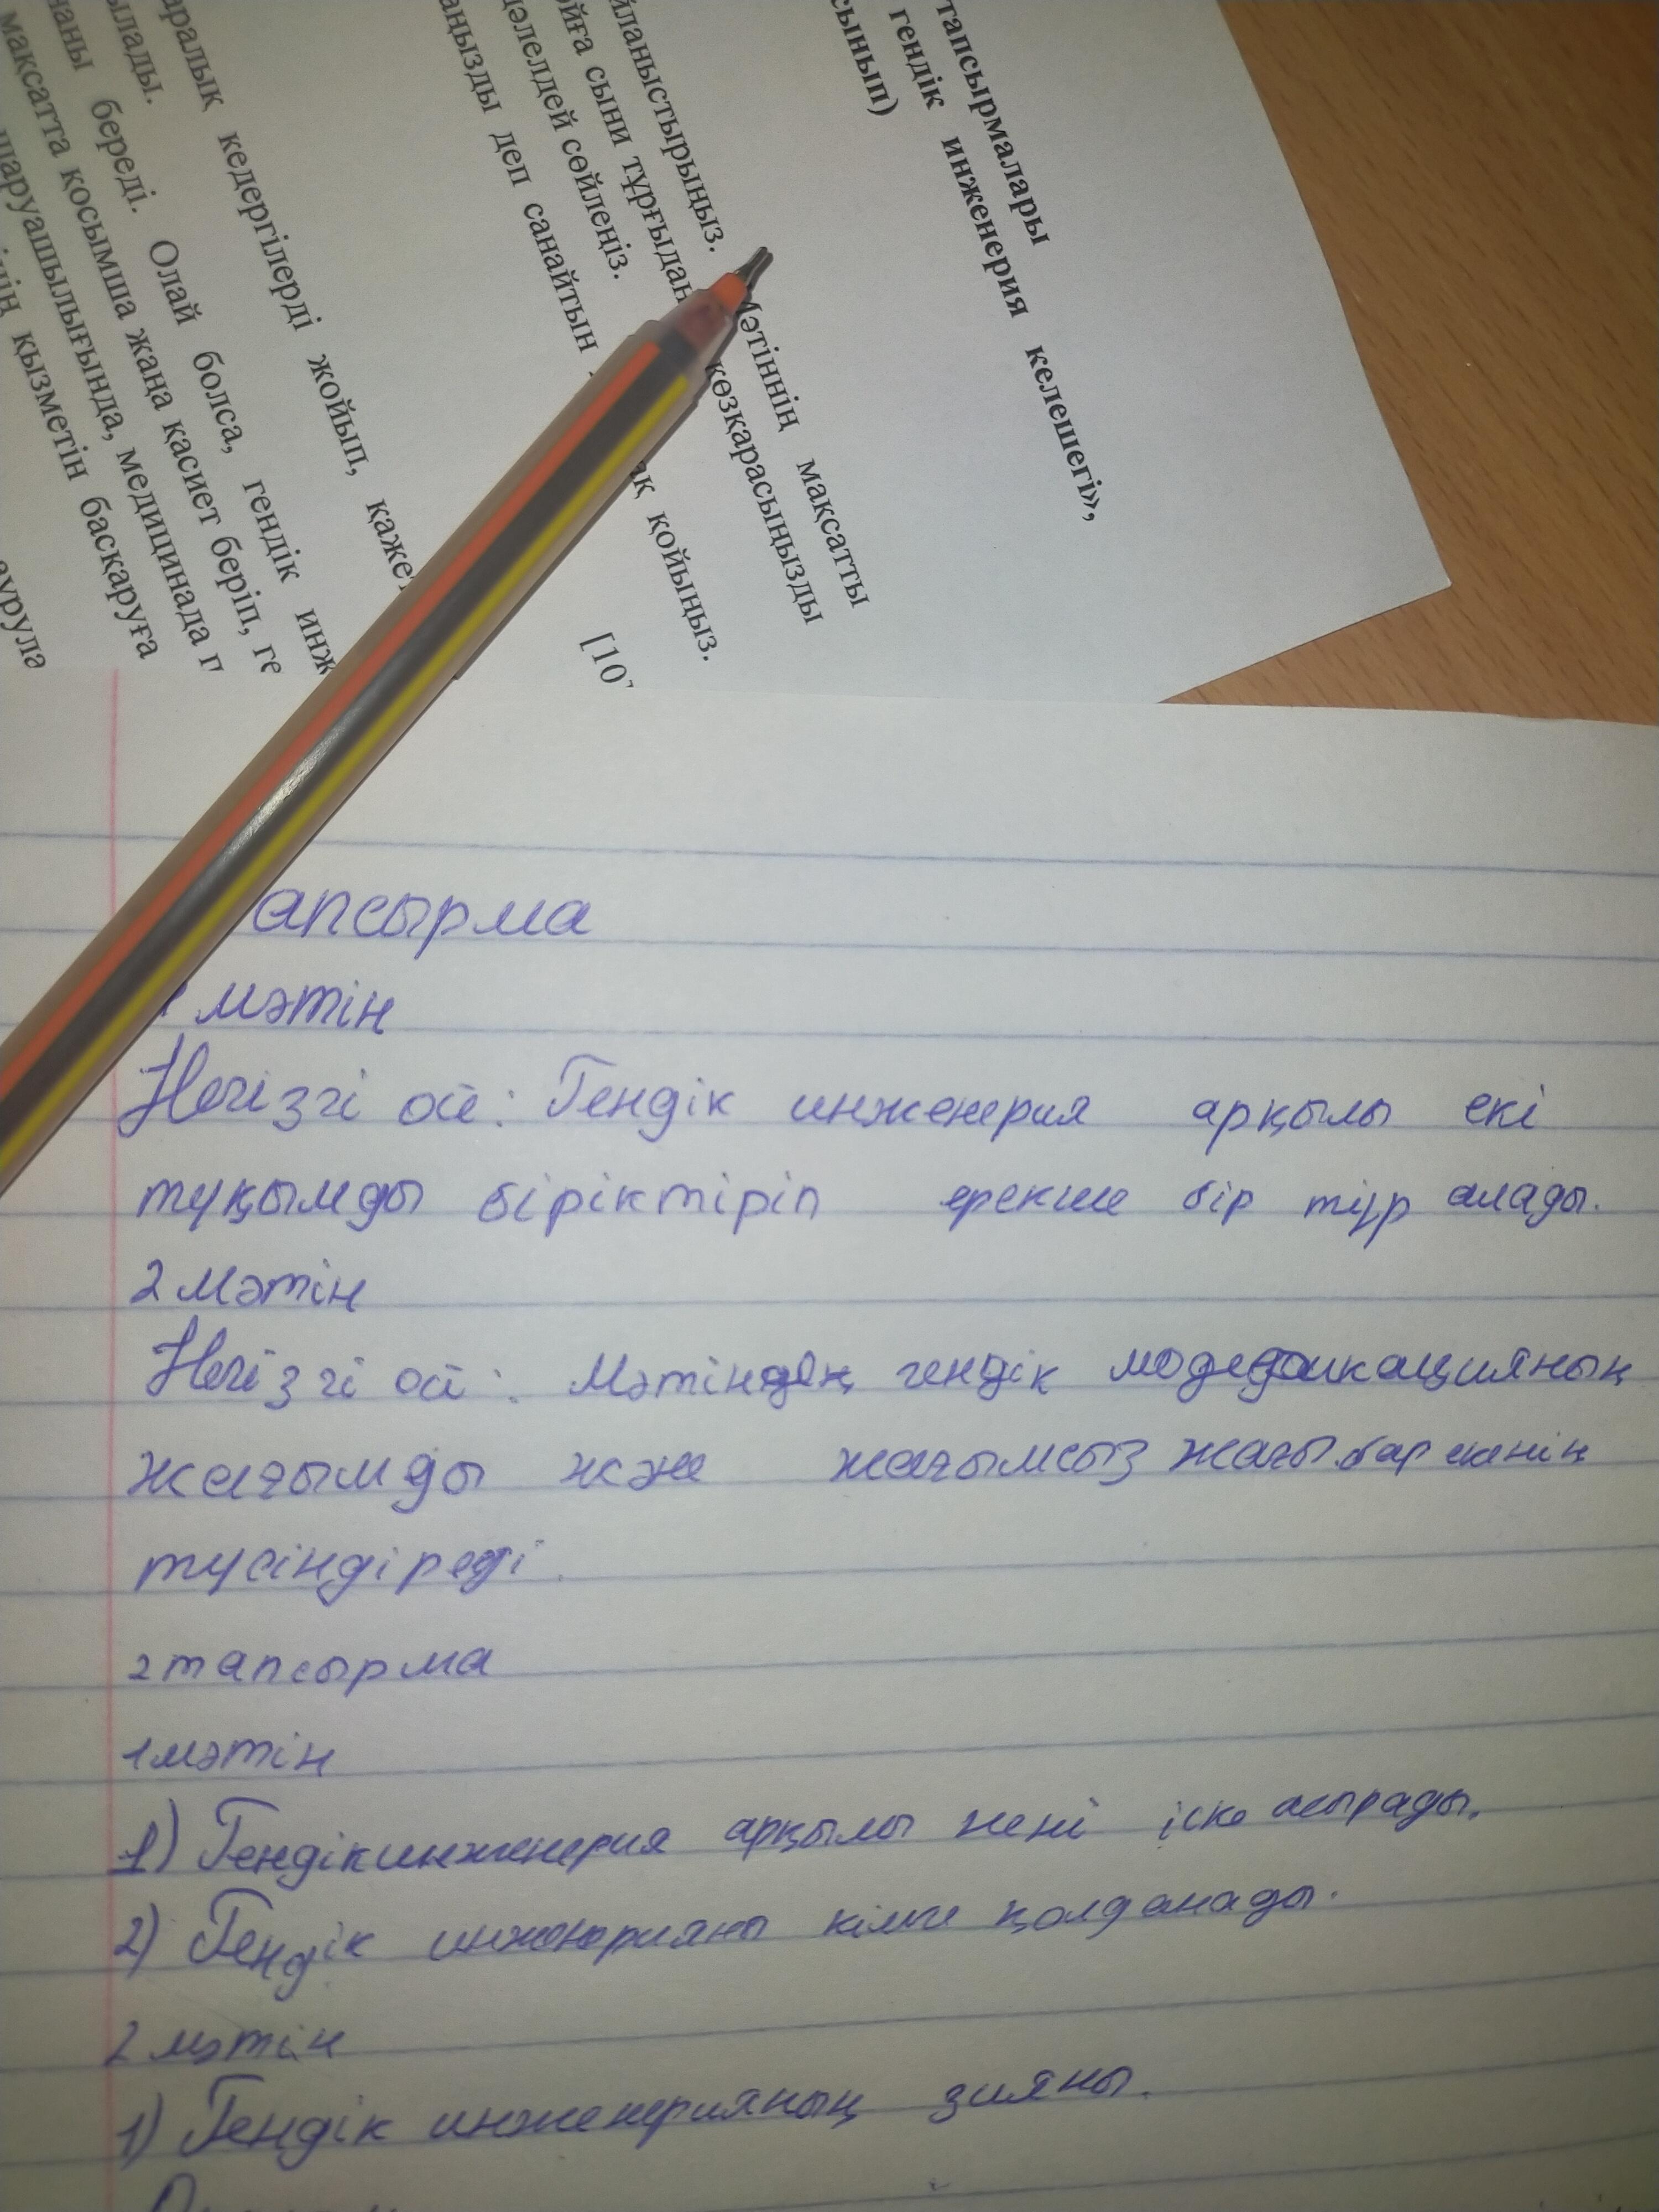 тапсырмалары
гендік инженерия келешегі»,
сынып)
йланыстырыңыз. Мәтіннің мақсатты
ойға сыни тұрғыдан көзқарасыңызды
дәлелдей сөйлеңіз.
аңызды деп санайтын ақ қойыңыз.
[10
аралық кедергілерді жойып, қажет
ылады.
наны береді. Олай болса, гендік инж
мақсатта қосымша жаңа қасиет беріп, ге
шаруашылығында, медицинада п
інің қызметін басқаруға
аурула
апсырма
мәтін
Негізгі ой: Гендік инженерия арқылы екі
тұқымды біріктіріп ерекше бір түр алады.
2 мәтін
Негізгі ой: Мәтіндең гендік модификацияның
жағымды және жағымсыз жағы бар екенің
түсіндіреді.
2 тапсырма
1 мәтін
1) Гендік инженерия арқылы нені іске асырады.
2) Гендік инженерияны кімге қолданады.
2 мәтін
1) Гендік инженерияның зияны.